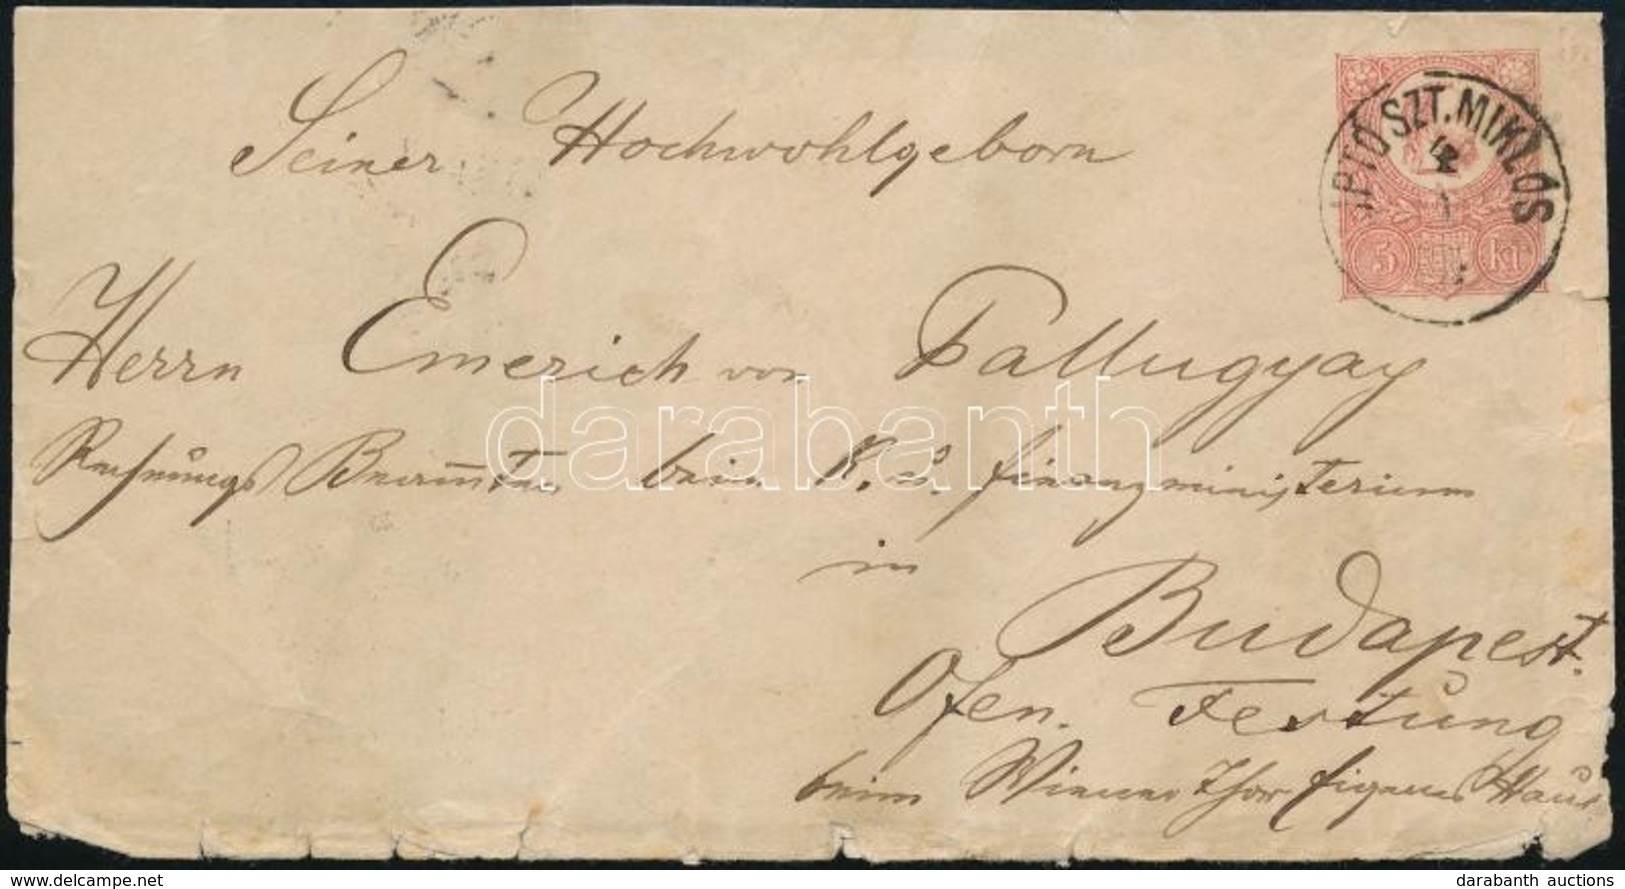 Seiner Hochwohlgeborn
LIPTÓ SZT. MIKLÓS
4
1
5 kr
Herrn Emerich von Pallugyay
darabanth
Rechnungs Beamten beim K. u. finanzministerium
in
Budapest.
Ofen. Festung
beim Wiener Thor eigenes Haus
www.delcampe.net
darabanth auctions